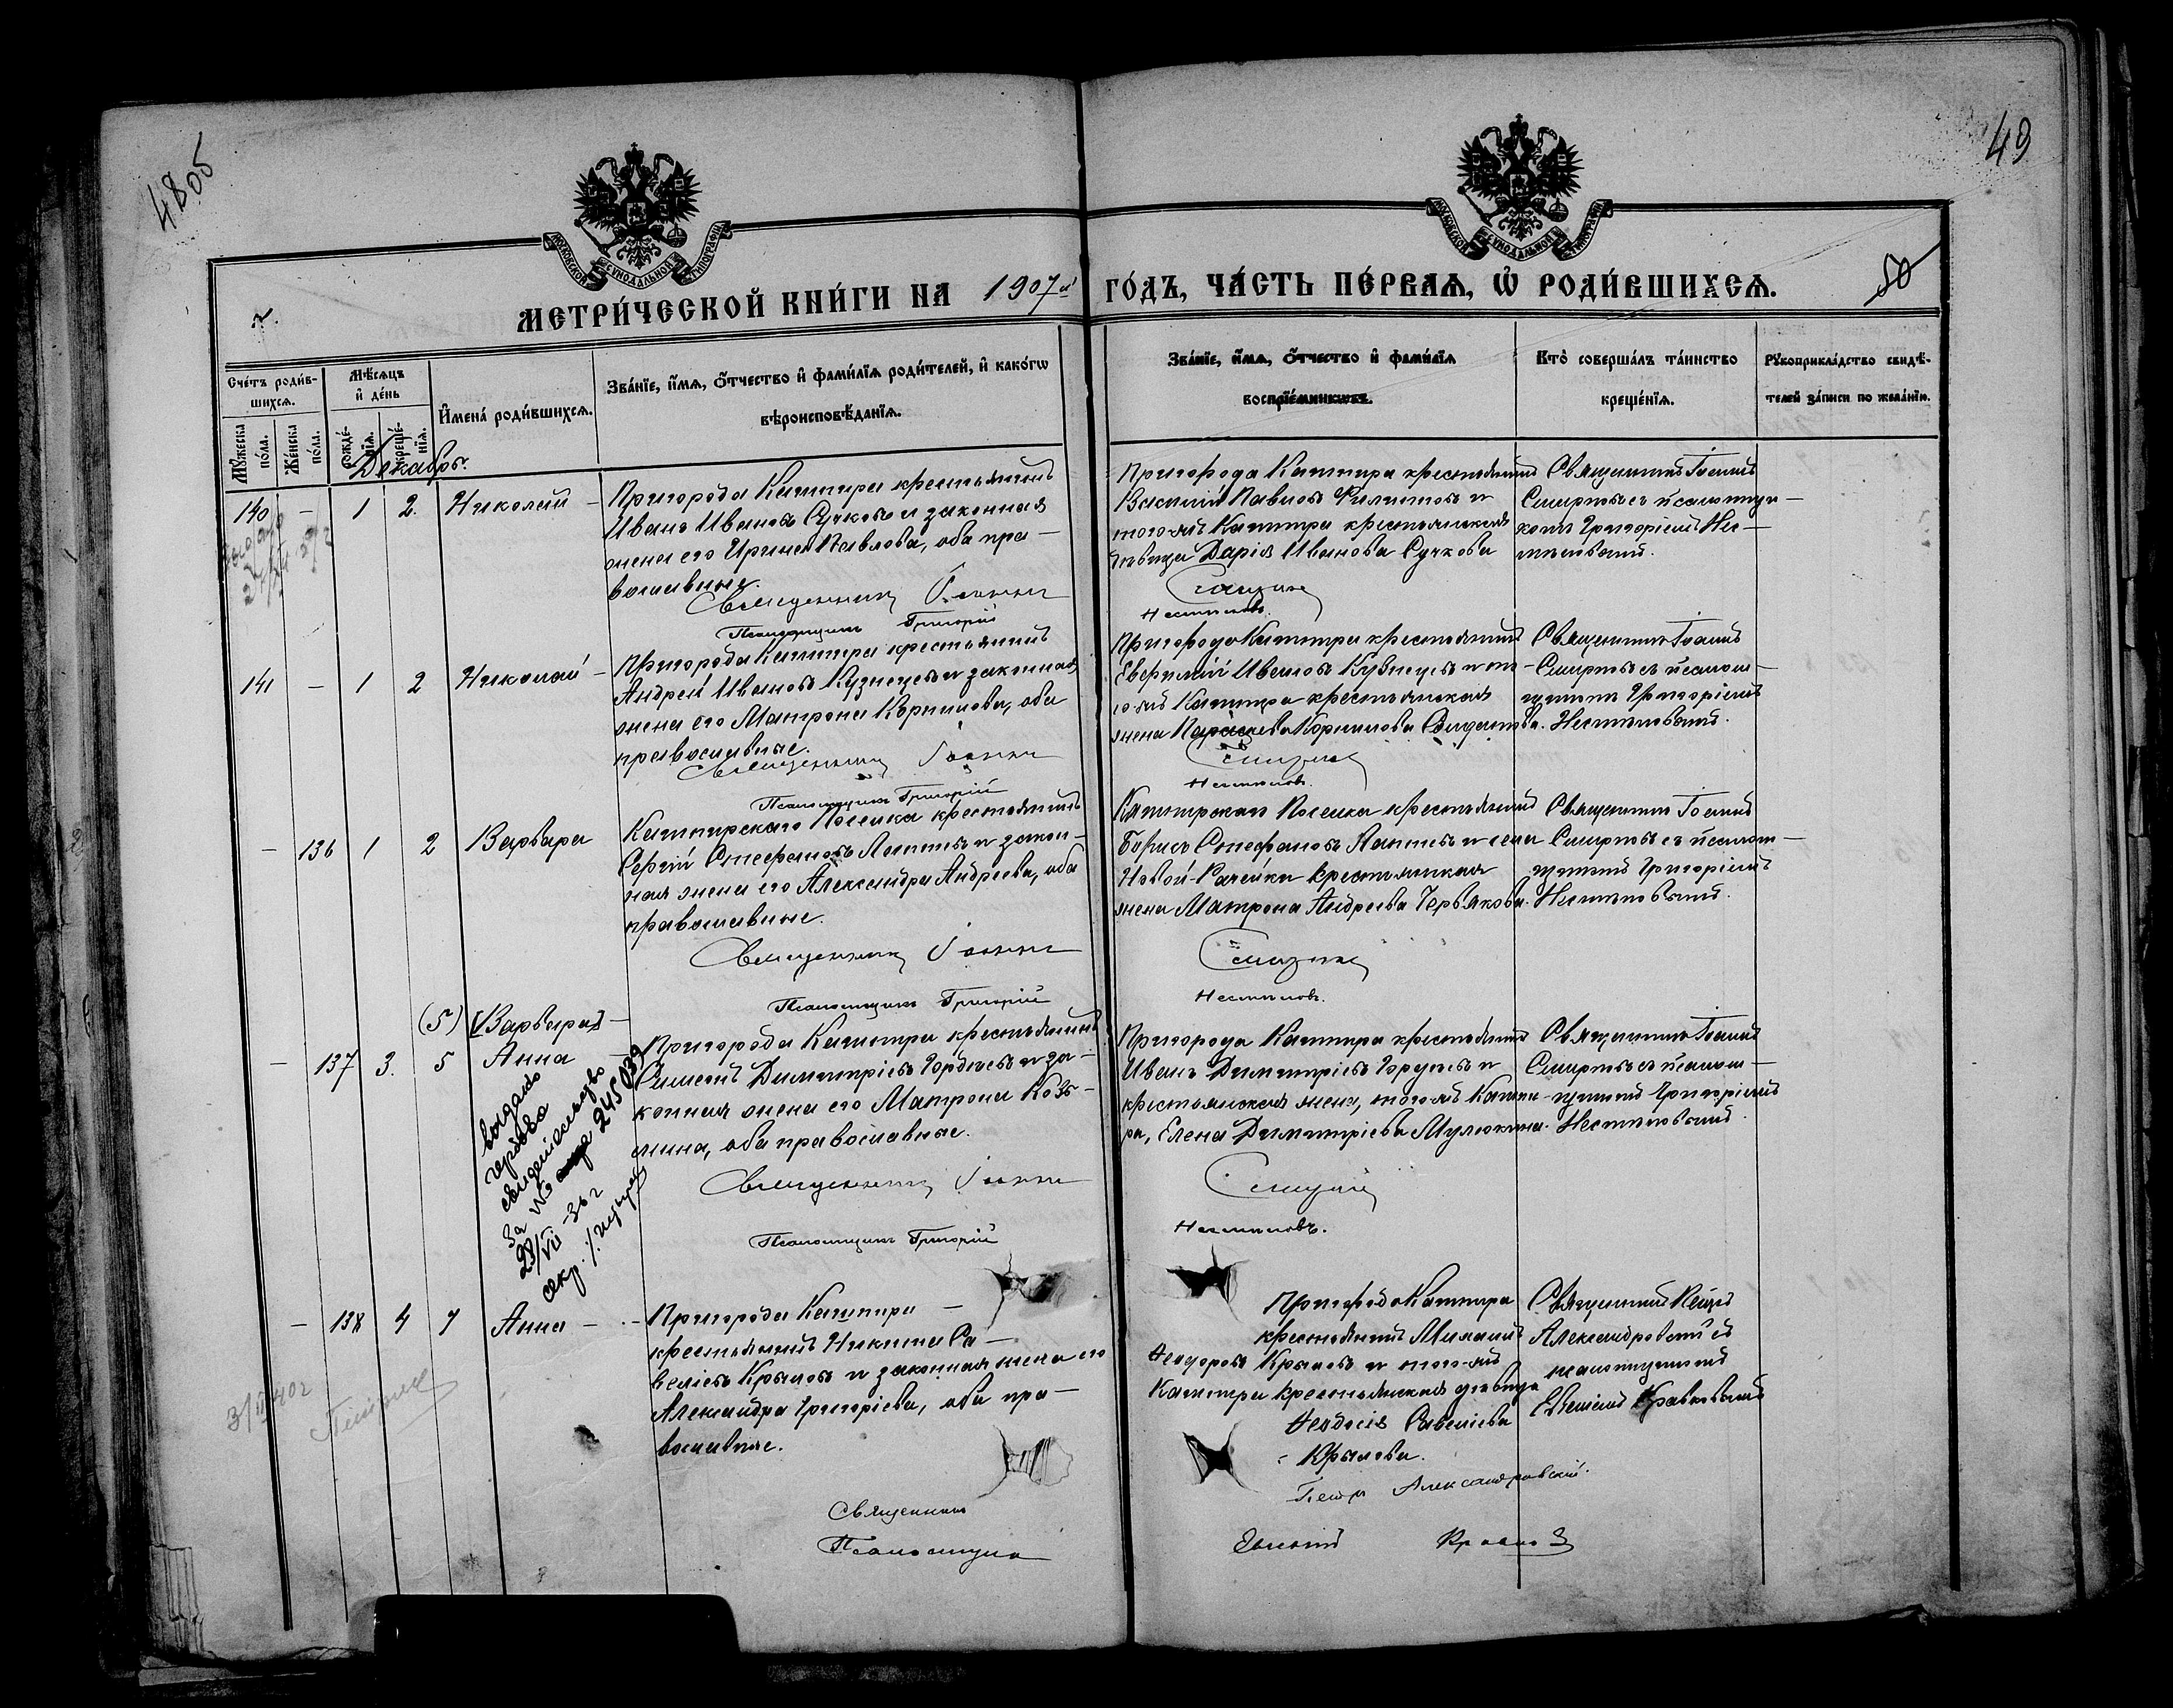 48об
49
50
МОСКОВСКОЙ СѴНОДАЛЬНОЙ ТИПОГРАФІИ
МОСКОВСКОЙ СѴНОДАЛЬНОЙ ТИПОГРАФІИ
МЕТРИ́ЧЕСКОЙ КНИ́ГИ НА 1907й ГО́ДЪ, ЧА́СТЬ ПЕ́РВАѦ, Ѡ҆ РОДИ́ВШИХСѦ.
Сче́тъ роди́в-
шихсѧ.
Мꙋ́жеска по́ла.
Же́нска по́ла.
Мѣ́сѧцъ
и҆ де́нь
рожде́-
нїѧ.
креще́-
нїѧ.
И҆мена̀ роди́вшихсѧ.
Зва́нїе, и҆́мѧ, ѻ҆́тчество и҆ фами́лїѧ роди́телей, и҆ како́гѡ
вѣроисповѣ́данїѧ.
Зва́нїе, и҆́мѧ, ѻ҆́тчество и҆ фами́лїѧ
воспрїе́мникѡвъ.
Кто̀ соверша́лъ та́инство
креще́нїѧ.
Рꙋкоприкла́дство свидѣ́-
телей за́писи по жела́нїю.
Декабрь.
140 – 1 2. Николай –
Пригорода Каштира крестьянинъ
Иванъ Ивановъ Сучковъ и законная
жена его Ирина Павлова, оба пра –
вославные.
Священникъ Іоаннъ
Псаломщикъ Григорій
Пригорода Каштира крестьянинъ
Василій Павловъ Филиповъ и
того-жъ Каштира крестьянская
дѣвица Дарія Иванова Сучкова
Смирновъ
Нестеловъ
Священникъ Іоаннъ
Смирновъ съ псаломщи –
комъ Григоріемъ Нес –
теловымъ.
141 – 1 2 Николай –
Пригорода Каштира крестьянинъ
Андрей Ивановъ Кузнецовъ и законная
жена его Матрона Корнилова, оба
православные.
Священникъ Іоаннъ
Псаломщикъ Григорій
Пригорода Каштира крестьянинъ
Ивановъ Кузнецовъ и то –
го-жъ Каштира крестьянская
жена Параскева Корнилова
Смирновъ
Нестеловъ
Священникъ Іоаннъ
Смирновъ съ псалом –
щикомъ Григоріемъ
Нестеловымъ.
– 136 1 2 Варвара
Каштирскаго Поселка крестьянинъ
Сергій Стефановъ Лаптевъ и закон –
ная жена его Александра Андреева, оба
православные.
Священникъ Іоаннъ
Псаломщикъ Григорій
Каштирскаго Поселка крестьянинъ
Борисъ Стефановъ Лаптевъ и села
Новой-Рачейки крестьянская
жена Матрона Андреева Червякова.
Смирновъ
Нестеловъ.
Священникъ Іоаннъ
Смирновъ съ псалом –
щикомъ Григоріемъ
Нестеловымъ.
(5) [Варвара] –
– 137 3. 5 Анна
Пригорода Каштира крестьянинъ
Симеонъ Димитріевъ и за –
конная жена его Матрона Козь –
мина, оба православные.
Священникъ Іоаннъ
Псаломщикъ Григорій
Пригорода Каштира крестьянинъ
Иванъ Димитріевъ и
крестьянская жена, того-жъ Кашти –
ра, Елена Димитріева Мулюкина.
Смирновъ
Нестеловъ.
Священникъ Іоаннъ
Смирновъ съ псалом –
щикомъ Григоріемъ
Нестеловымъ.
выдано
гербовое
свидетельство
За № 245039
29/VII – 36 г
секр.
– 138 4 7 Анна –
Пригорода Каштира –
крестьянинъ Никита Са –
веліевъ Крыловъ и законная жена его
Александра Григоріева, оба пра –
вославные.
Священникъ
Псаломщикъ
Пригорода Каштира
крестьянинъ
Феодоровъ Крыловъ и того-жъ
Каштира крестьянская дѣвица
Феодосія Савеліева
Крылова.
Петръ Александровскій.
Евгеній Кравковъ
Священникъ Петръ
Александровскій съ
псаломщикомъ
Евгеніемъ Кравковымъ